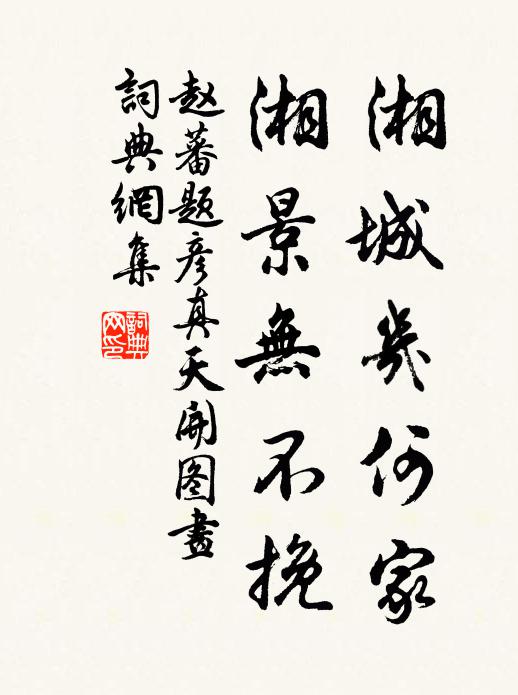 湘城幾何家
湘景無不挽
赵蕃题彦真天開图畫
詞典網集
詞典
网印